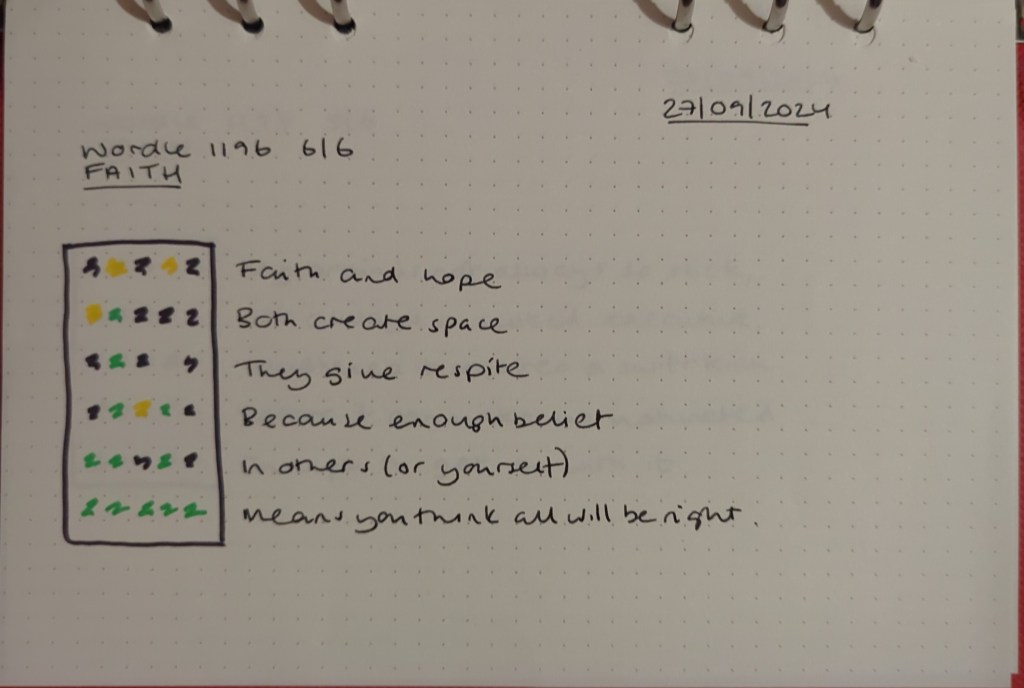 27/09/2024
Wordle 1196 6/6
FAITH
Faith and hope
Both create space
They give respite
Because enough belief
In others (or yourself)
Means you think all will be right.